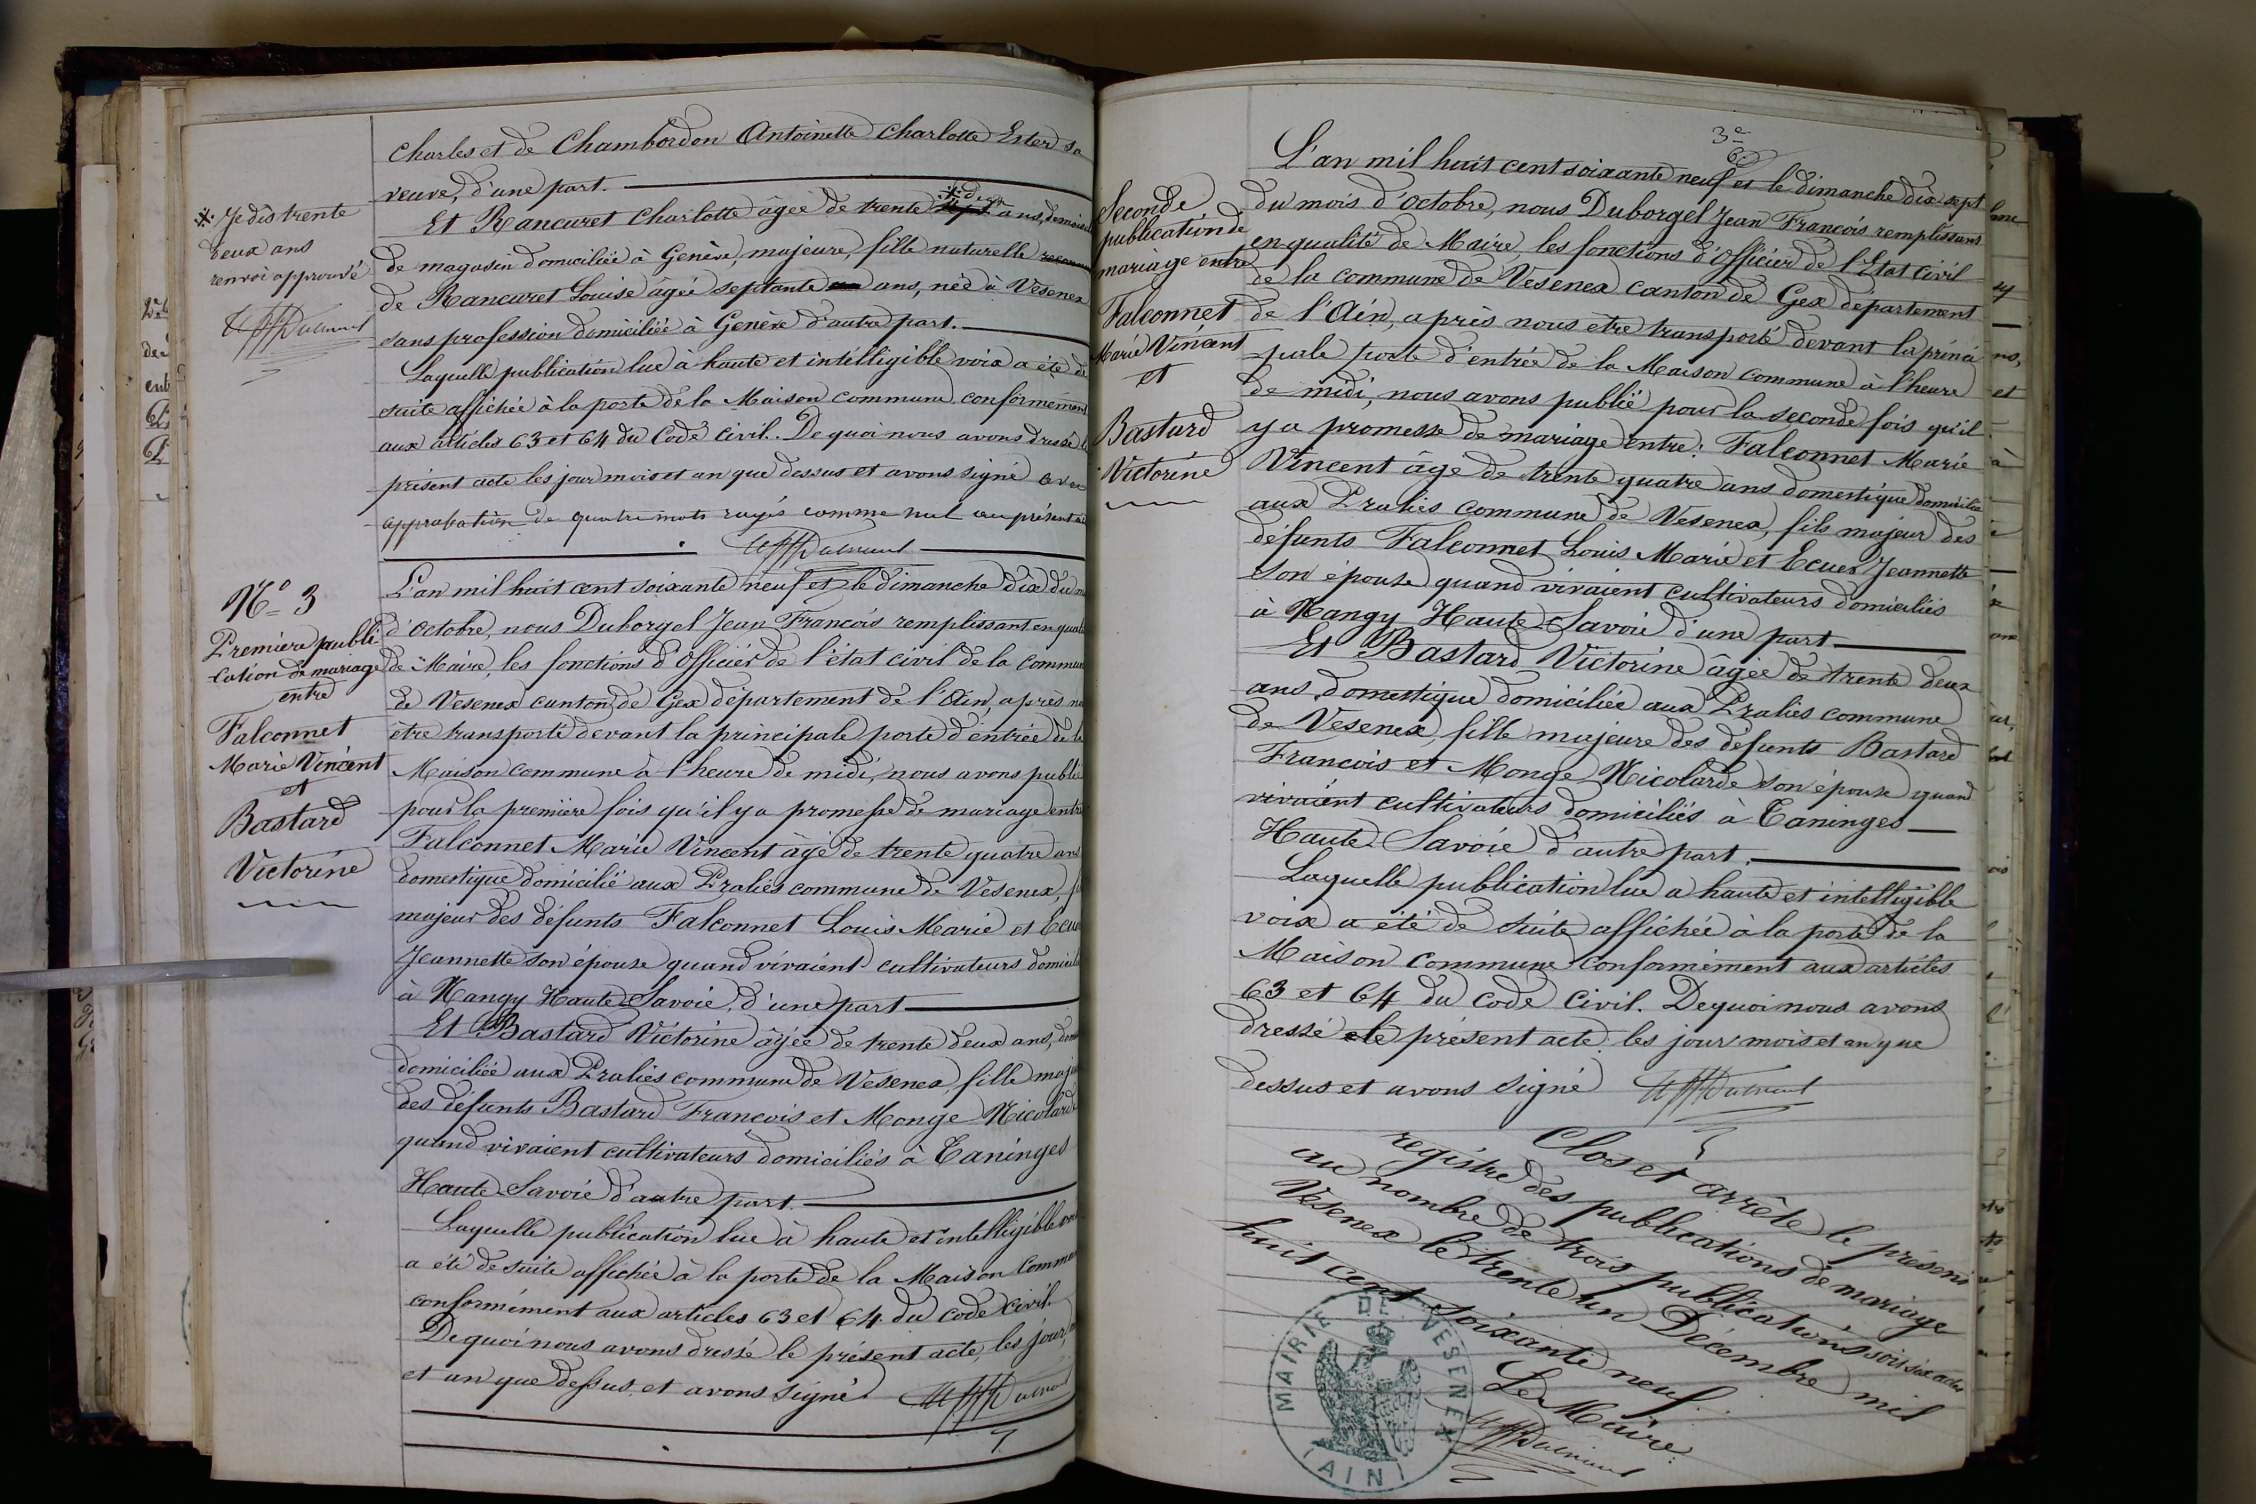 Charles et de Chambordon Antoinette Charlotte Ester sa
veuve, d'une part.
Et Rancuret Charlotte âgée de trente ans,
de magasin domiciliée à Genève, majeure, fille naturelle
de Rancuret Louise agée septante ans, née à Vesenex
sans profession domiciliée à Genève d'autre part.
Laquelle publication lue à haute et intélligible voix a été de
suite affichée à la porte de la Maison commune conformément
aux articles 63 et 64 du Code civil. De quoi nous avons dressé le
présent acte les jour mois et an que dessus et avons signé avec
approbation de quatre mots rayés comme nul au présent
※ Je dis trente
deux ans
renvoi approuvé
N° 3
Première publi
cation de mariage
entre
Falconnet
Marie Vincent
et
Bastard
Victorine
L'an mil huit cent soixante neuf et le dimanche dix du
d'octobre, nous Duborgel Jean François remplissant en qualité
de Maire, les fonctions d'Officier de l'état civil de la commune
de Vesenex canton de Gex département de l'Ain, après
être transporté devant la principale porte d'entrée de la
Maison commune à l'heure de midi, nous avons publié
pour la première fois qu'il y a promesse de mariage entre
Falconnet Marie Vincent âgé de trente quatre ans
domestique domicilié aux Pralies commune de Vesenex,
majeur des défunts Falconnet Louis Marie et Ecuer
Jeannette son épouse quand vivaient cultivateurs
à Nangy Haute-Savoie, d'une part
Et Bastard Victorine âgée de trente deux ans,
domiciliée aux Pralies commune de Vesenex, fille
des défunts Bastard François et Monge Nicolarde
quand vivaient cultivateurs domiciliés à Taninges
Haute-Savoie d'autre part.
Laquelle publication lue à haute et intelligible
a été de suite affichée à la porte de la Maison
conformément aux articles 63 et 64 du code civil.
De quoi nous avons dressé le présent acte, les jour,
et an que dessus et avons signé
3e
Seconde
publication de
mariage entre
Falconnet
Marie Vincent
et
Bastard
Victorine
L'an mil huit cent soixante neuf et le dimanche dix sept
du mois d'octobre, nous Duborgel Jean François remplissant
en qualité de Maire, les fonctions d'Officier de l'Etat civil
de la commune de Vesenex canton de Gex département
de l'Ain, après nous etre transporté devant la princi
pale porte d'entrée de la Maison commune à l'heure
de midi, nous avons publié pour la seconde fois qu'il
y a promesse de mariage entre: Falconnet Marie
Vincent âge de trente quatre ans domestique domicilié
aux Pralies commune de Vesenex, fils majeur des
défunts Falconnet Louis Marie et Ecuer Jeannette
son épouse quand vivaient cultivateurs domiciliés
à Nangy Haute-Savoie d'une part
Et Bastard Victorine âgée de trente deux
ans domestique domiciliée aux Pralies commune
de Vesenex, fille majeure des défunts Bastard
François et Monge Nicolarde son épouse quand
vivaient cultivateurs domiciliés à Taninges
Haute-Savoie d'autre part.
Laquelle publication lue a haute et intelligible
voix a été de suite affichée à la porte de la
Maison commune conformément aux articles
63 et 64 du code civil. De quoi nous avons
dressé le présent acte les jour mois et an que
dessus et avons signé
Clos et arrêté le présent
registre des publications de mariage
au nombre de trois publications soit six actes
Vesenex le trente un Décembre mil
huit cent soixante neuf.
Le Maire
MAIRIE DE VESENEX
(AIN)